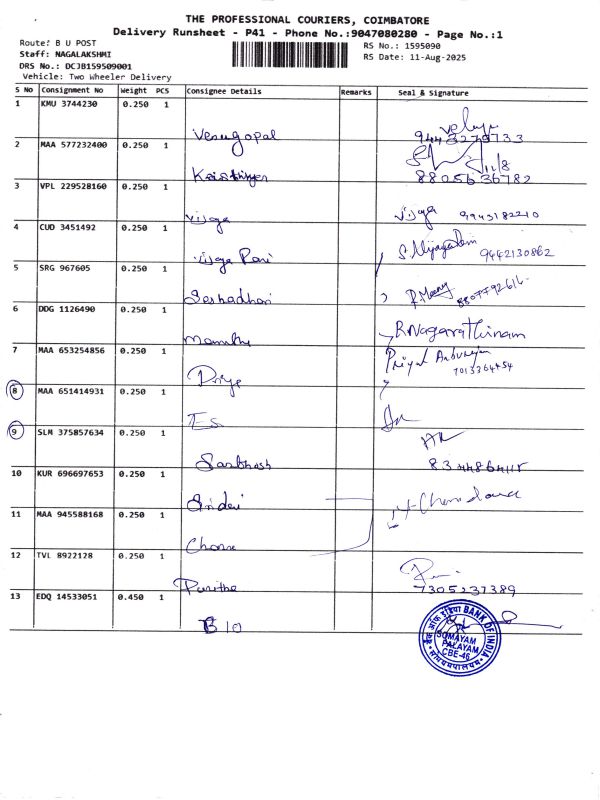 THE PROFESSIONAL COURIERS, COIMBATORE
Delivery Runsheet - P41 - Phone No.:9047080280 - Page No.:1
Route: B U POST
Staff: NAGALAKSHMI
DRS No.: DCJB159509001
Vehicle: Two Wheeler Delivery
RS No.: 1595090
RS Date: 11-Aug-2025
S No Consignment No Weight PCS Consignee Details Remarks Seal & Signature
1 KMU 3744230 0.250 1
Venugopal
2 MAA 577232400 0.250 1
11/8
8805636782
3 VPL 229528160 0.250 1
Vijaya Vijaya 9943182210
4 CUD 3451492 0.250 1
Vijaya Rani 9442130862
5 SRG 967605 0.250 1
Seshadhari
6 DDG 1126490 0.250 1
R.Nagarathinam
7 MAA 653254856 0.250 1
Priya
8 MAA 651414931 0.250 1
9 SLM 375857634 0.250 1
Santhosh
10 KUR 696697653 0.250 1
11 MAA 945588168 0.250 1
12 TVL 8922128 0.250 1
7305237389
13 EDQ 14533051 0.450 1
बैंक ऑफ इंडिया BANK OF INDIA
SOMAYAM
PALAYAM
CBE-46